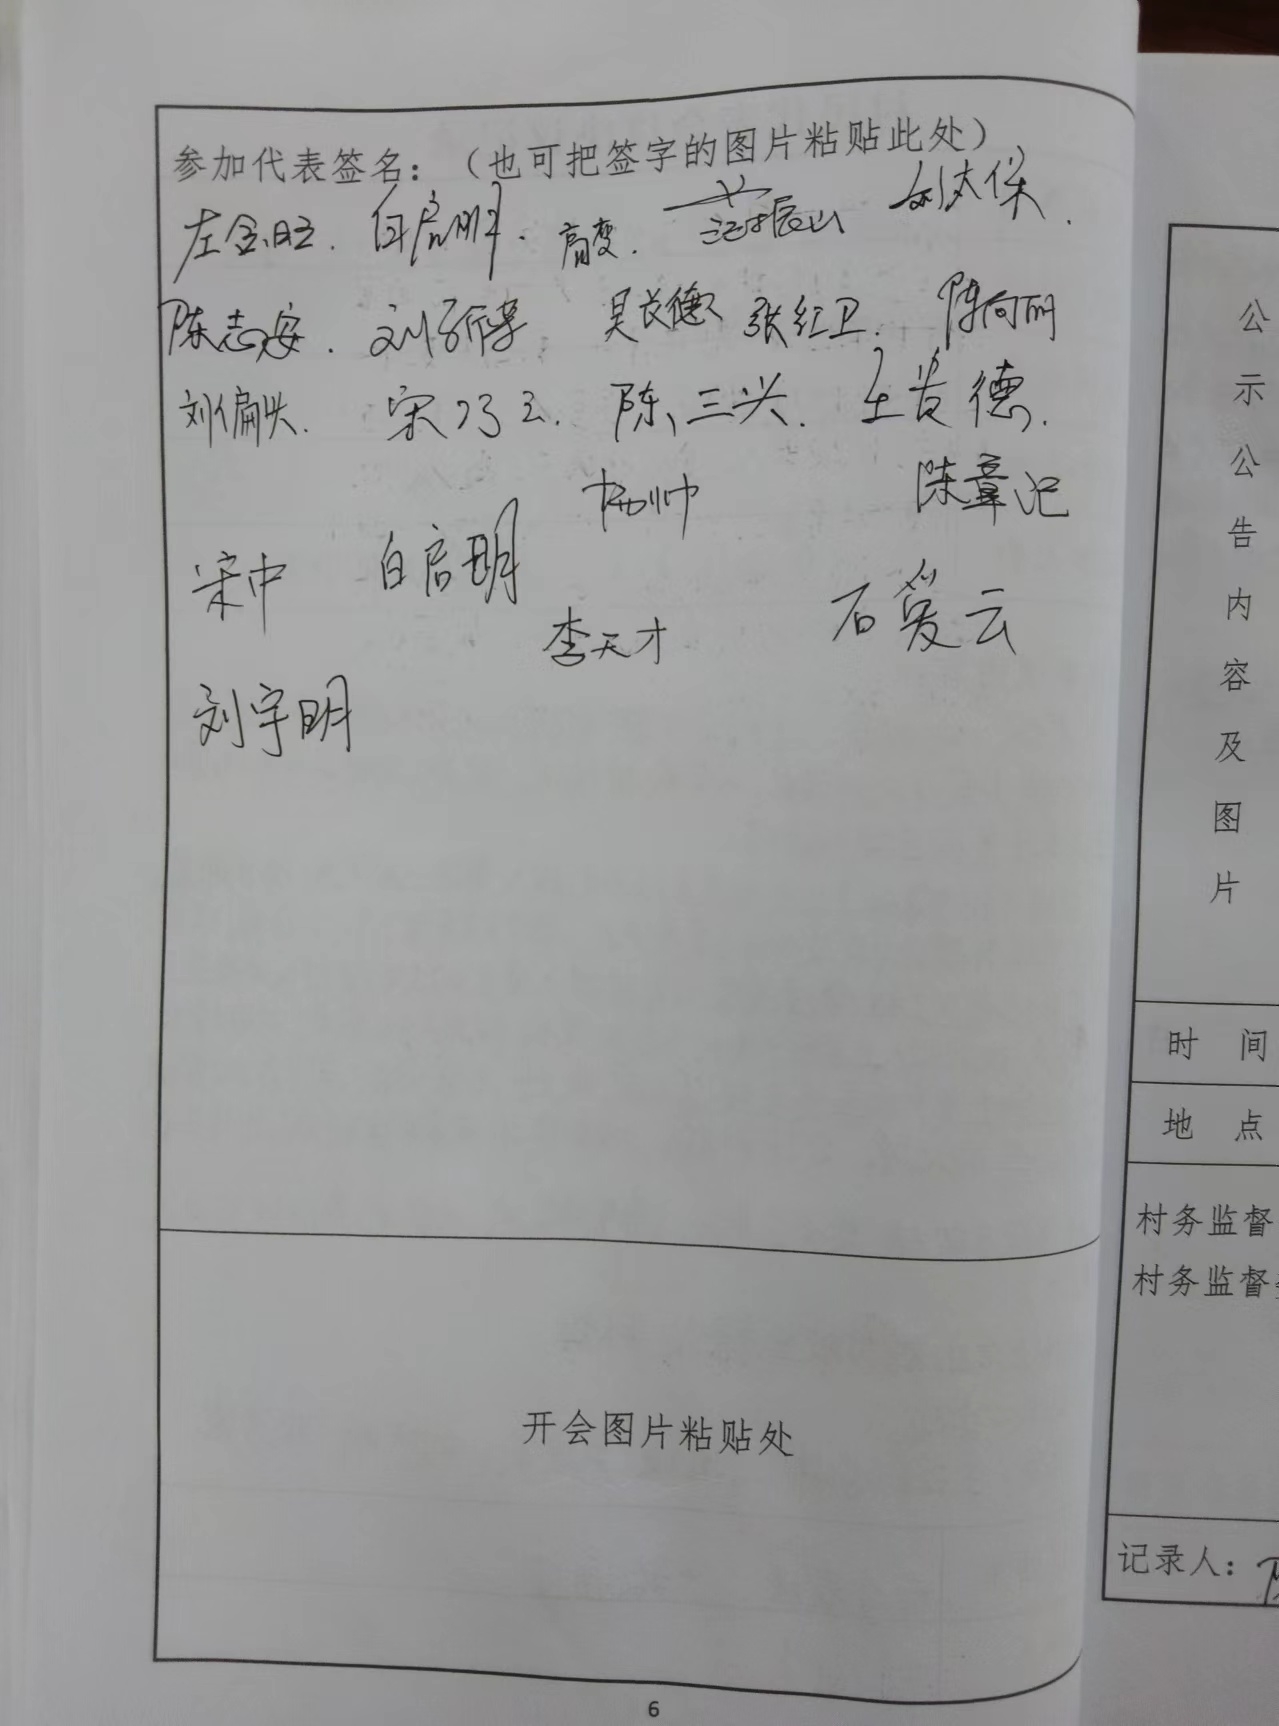 参加代表签名：（也可把签字的图片粘贴此处）
左金旺. 白启明. 高变. 范振山 刘太保.
陈志安. 刘 吴长德 张红卫. 陈向丽
刘偏头. 宋巧云. 陈三兴. 王贵德.
杨帅 陈章记
宋中 白启明
李天才 石爱云
刘宇明
开会图片粘贴处
6
公示公告内容及图片
时 间
地 点
村务监督
村务监督
记录人：